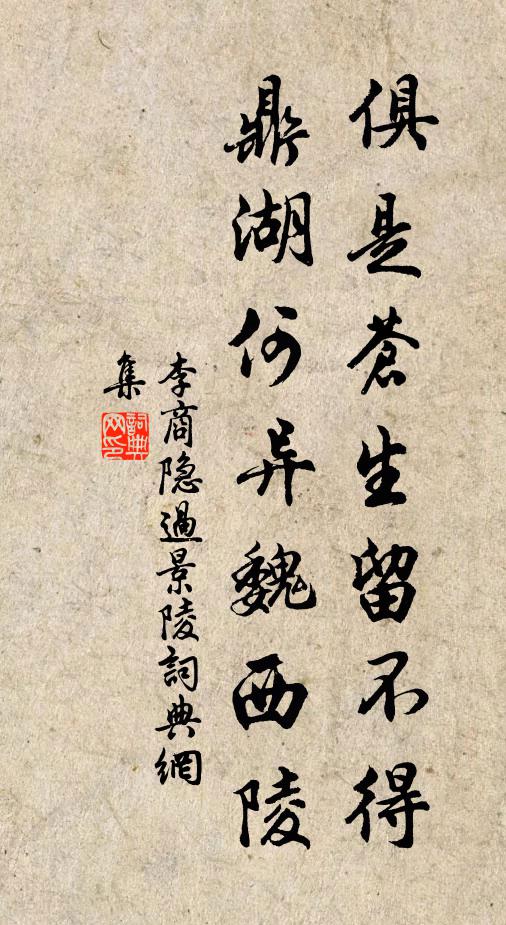 俱是蒼生留不得
鼎湖何异魏西陵
李商隐過景陵詞典網
集
詞典网印